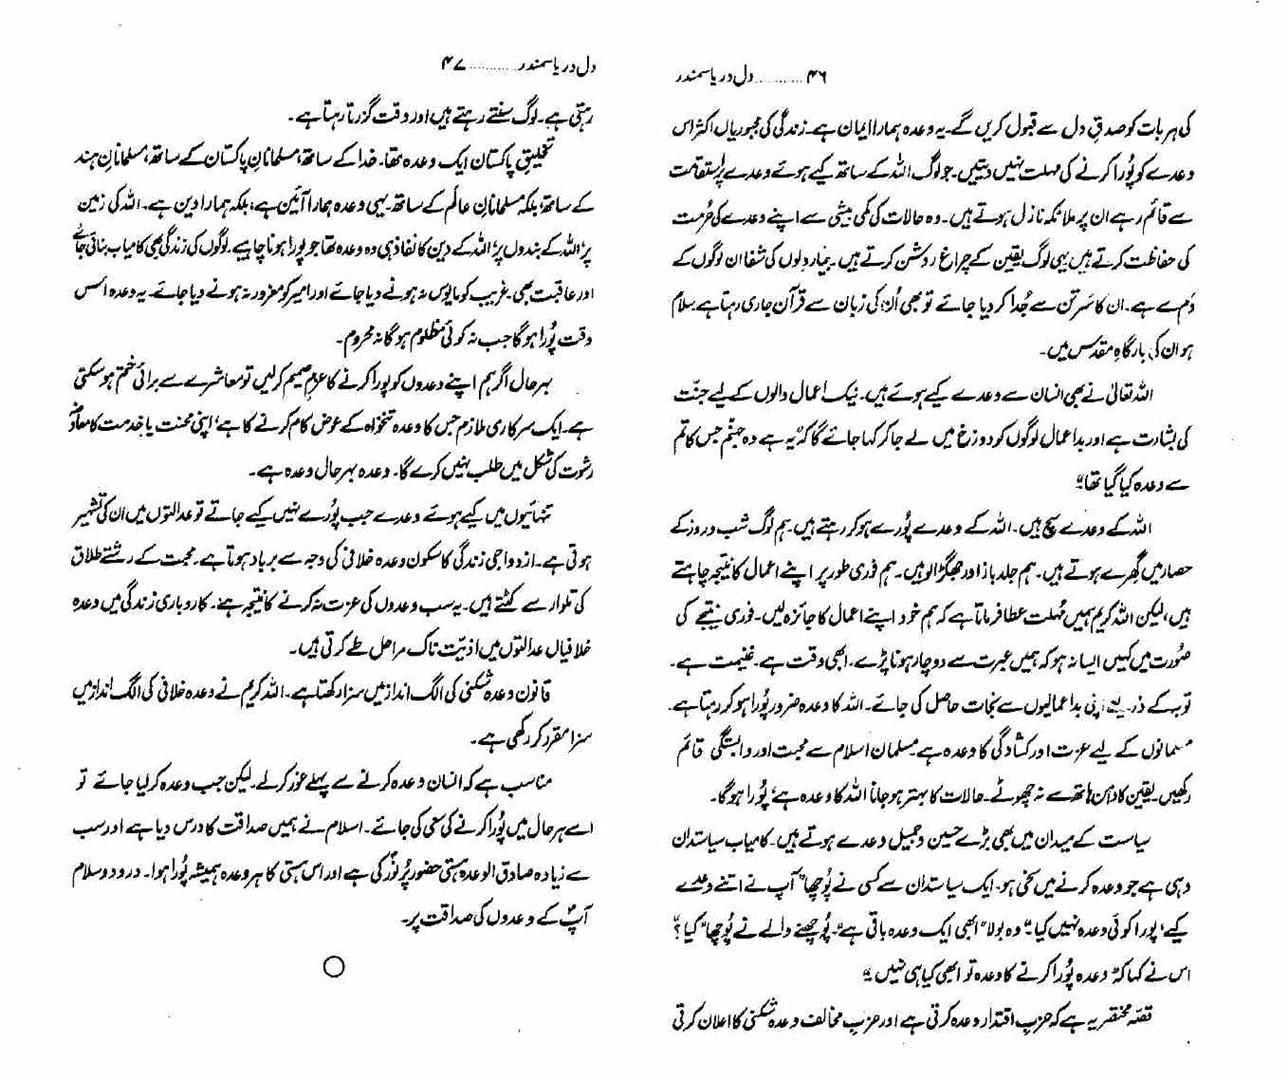 ۴۶ ........... دل دریا سمندر
کی ہر بات کو صدقِ دل سے قبول کریں گے۔ یہ وعدہ ہمارا ایمان ہے۔ زندگی کی مجبوریاں اکثر اس
وعدے کو پُورا کرنے کی مہلت نہیں دیتیں۔ جو لوگ اللہ کے ساتھ کیے ہوئے وعدے پر استقامت
سے قائم رہے ان پر ملائکہ نازل ہوتے ہیں۔ وہ حالات کی کمی بیشی سے اپنے وعدے کی حُرمت
کی حفاظت کرتے ہیں یہی لوگ یقین کے چراغ روشن کرتے ہیں۔ بیمار دلوں کی شفا ان لوگوں کے
دَم سے ہے۔ ان کا سَر تن سے جُدا کر دیا جائے تو بھی اُن کی زبان سے قرآن جاری رہتا ہے سلام
ہو ان کی بارگاہِ مقدس میں۔
اللہ تعالیٰ نے بھی انسان سے وعدے کیے ہوئے ہیں۔ نیک اعمال والوں کے لیے جنّت
کی بشارت ہے اور بد اعمال لوگوں کو دوزخ میں لے جا کر کہا جائے گا کہ "یہ ہے وہ جہنّم جس کا تم
سے وعدہ کیا گیا تھا"
اللہ کے وعدے سچ ہیں۔ اللہ کے وعدے پُورے ہو کر رہتے ہیں۔ ہم لوگ شب و روز کے
حصار میں گھِرے ہوتے ہیں۔ ہم جلد باز اور جھگڑالو ہیں۔ ہم فوری طور پر اپنے اعمال کا نتیجہ چاہتے
ہیں، لیکن اللہ کریم ہمیں مُہلت عطا فرماتا ہے کہ ہم خود اپنے اعمال کا جائزہ لیں۔ فوری نتیجے کی
صُورت میں کہیں ایسا نہ ہو کہ ہمیں عبرت سے دوچار ہونا پڑے۔ ابھی وقت ہے۔ غنیمت ہے۔
توبہ کے ذریعے اپنی بد اعمالیوں سے نجات حاصل کی جائے۔ اللہ کا وعدہ ضرور پُورا ہو کر رہتا ہے۔
مسلمانوں کے لیے عزت اور کشادگی کا وعدہ ہے مسلمان اسلام سے محبت اور وابستگی قائم
رکھیں۔ یقین کا دامن ہاتھ سے نہ چھوٹے۔ حالات کا بہتر ہو جانا اللہ کا وعدہ ہے، پُورا ہو گا۔
سیاست کے میدان میں بھی بڑے حسین و جمیل وعدے ہوتے ہیں۔ کامیاب سیاستدان
وہی ہے جو وعدہ کرنے میں سخی ہو۔ ایک سیاستدان سے کسی نے پُوچھا "آپ نے اتنے وعدے
کیے، پورا کوئی وعدہ نہیں کیا" وہ بولا "ابھی ایک وعدہ باقی ہے"۔ پُوچھنے والے نے پُوچھا "کیا؟"
اس نے کہا کہ "وعدہ پُورا کرنے کا وعدہ تو ابھی کیا ہی نہیں"
قصّہ مختصر یہ ہے کہ حزبِ اقتدار وعدہ کرتی ہے اور حزبِ مخالف وعدہ شکنی کا اعلان کرتی
دل دریا سمندر ........... ۴۷
رہتی ہے۔ لوگ سنتے رہتے ہیں اور وقت گزرتا رہتا ہے۔
تخلیقِ پاکستان ایک وعدہ تھا۔ خدا کے ساتھ، مسلمانانِ پاکستان کے ساتھ، مسلمانانِ ہند
کے ساتھ، بلکہ مسلمانانِ عالم کے ساتھ۔ یہی وعدہ ہمارا آئین ہے، بلکہ ہمارا دین ہے۔ اللہ کی زمین
پر، اللہ کے بندوں پر، اللہ کے دین کا نفاذ ہی وہ وعدہ تھا جو پورا ہونا چاہیے۔ لوگوں کی زندگی بھی کامیاب بنائی جائے
اور عاقبت بھی۔ غریب کو مایوس نہ ہونے دیا جائے اور امیر کو مغرور نہ ہونے دیا جائے۔ یہ وعدہ اُس
وقت پُورا ہو گا جب نہ کوئی مظلوم ہو گا نہ محروم۔
بہرحال اگر ہم اپنے وعدوں کو پورا کرنے کا عزمِ صمیم کر لیں تو معاشرے سے برائی ختم ہو سکتی
ہے۔ ایک سرکاری ملازم جس کا وعدہ تنخواہ کے عوض کام کرنے کا ہے، اپنی محنت یا خدمت کا معاوضہ
رشوت کی شکل میں طلب نہیں کرے گا۔ وعدہ بہرحال وعدہ ہے۔
تنہائیوں میں کیے ہوئے وعدے جب پُورے نہیں کیے جاتے تو عدالتوں میں ان کی تشہیر
ہوتی ہے۔ ازدواجی زندگی کا سکون وعدہ خلافی کی وجہ سے برباد ہوتا ہے۔ محبت کے رشتے طلاق
کی تلوار سے کٹتے ہیں۔ یہ سب وعدوں کی عزت نہ کرنے کا نتیجہ ہے۔ کاروباری زندگی میں وعدہ
خلافیاں عدالتوں میں اذیّت ناک مراحل طے کرتی ہیں۔
قانون وعدہ شکنی کی الگ انداز میں سزا رکھتا ہے۔ اللہ کریم نے وعدہ خلافی کی الگ انداز میں
سزا مقرر کر رکھی ہے۔
مناسب ہے کہ انسان وعدہ کرنے سے پہلے غور کر لے۔ لیکن جب وعدہ کر لیا جائے تو
اسے ہر حال میں پُورا کرنے کی سعی کی جائے۔ اسلام نے ہمیں صداقت کا درس دیا ہے اور سب
سے زیادہ صادق الوعدہ ہستی حضور پُر نُورؐ کی ہے اور اس ہستی کا ہر وعدہ ہمیشہ پُورا ہوا۔ درود و سلام
آپؐ کے وعدوں کی صداقت پر۔